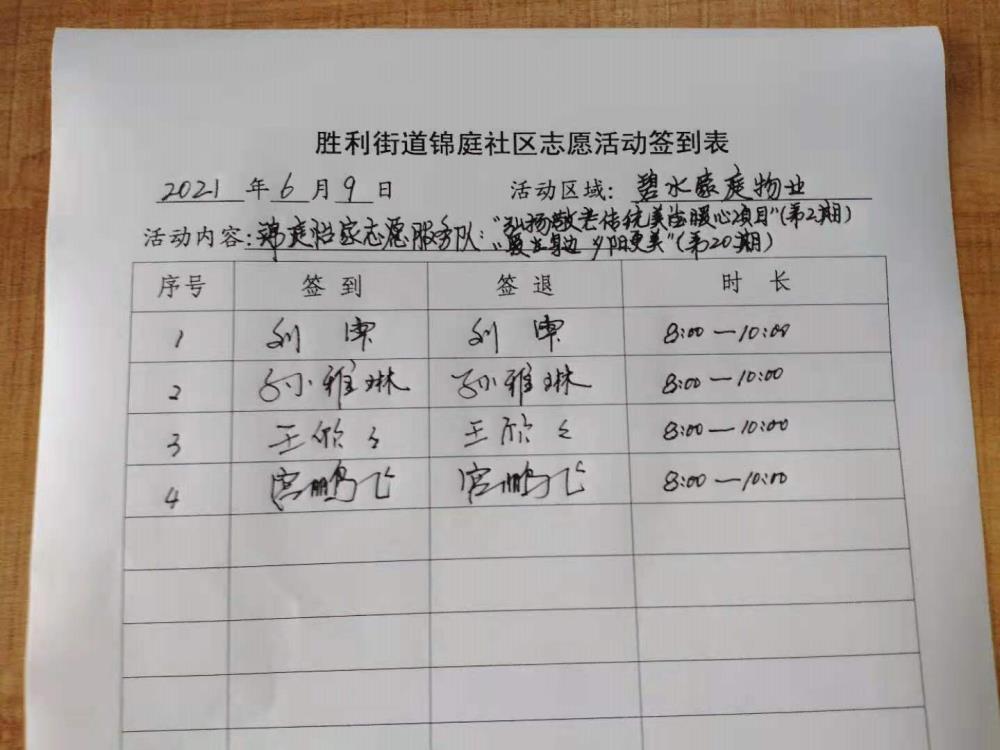 胜利街道锦庭社区志愿活动签到表
2021 年 6 月 9 日 活动区域: 碧水豪庭物业
活动内容: 锦庭怡家志愿服务队: "弘扬敬老传统美德暖心项目"(第2期)
"爱在身边 夕阳更美"(第20期)
序号 签到 签退 时长
1 刘 刘 8:00—10:00
2 孙雅琳 孙雅琳 8:00—10:00
3 王欣 王欣 8:00—10:00
4 宫鹏飞 宫鹏飞 8:00—10:00